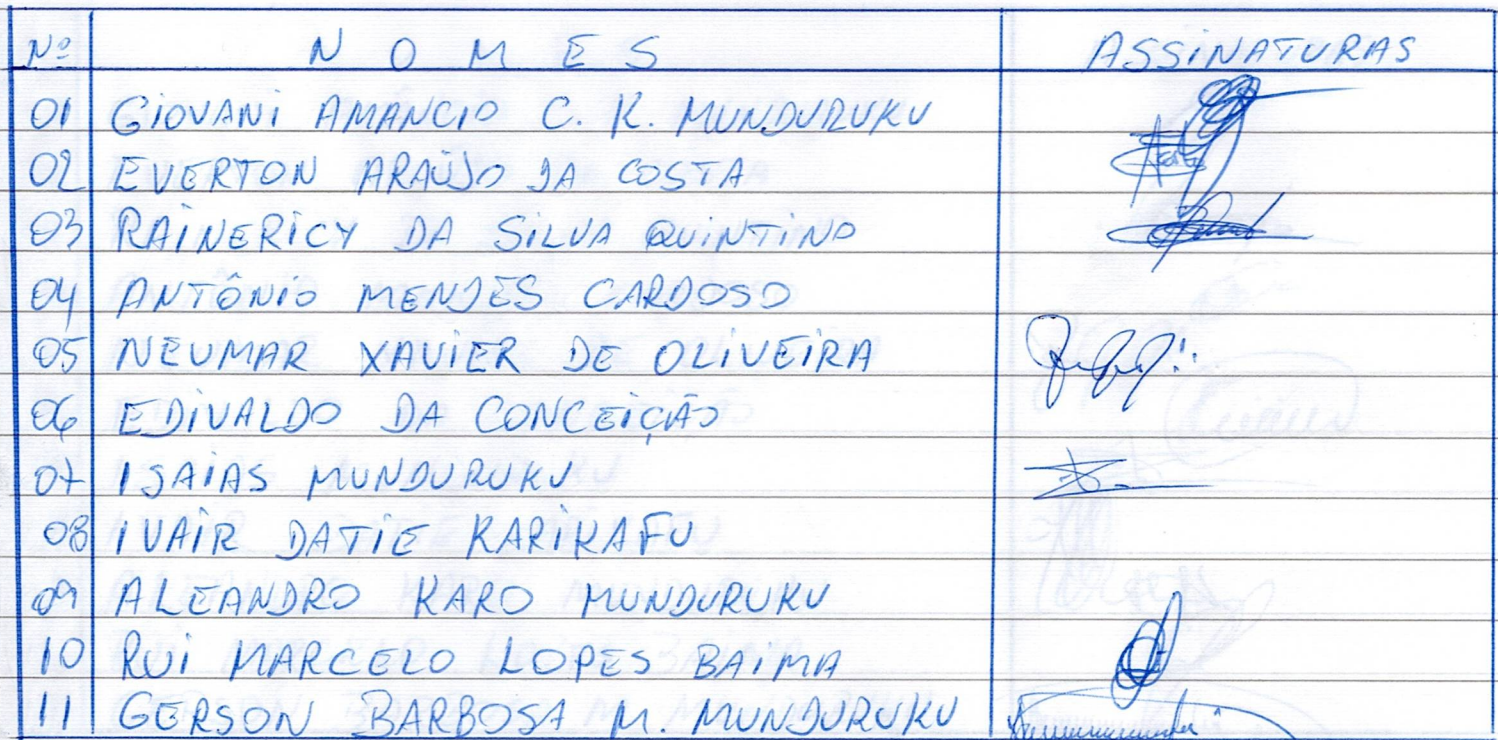 Nº NOMES ASSINATURAS
01 GIOVANI AMANCIO C. K. MUNDURUKU
02 EVERTON ARAÚJO DA COSTA
03 RAINERICY DA SILVA QUINTINO
04 ANTÔNIO MENDES CARDOSO
05 NEUMAR XAVIER DE OLIVEIRA
06 EDIVALDO DA CONCEIÇÃO
07 ISAIAS MUNDURUKU
08 IVAIR DATIE KARIKAFU
09 ALEANDRO KARO MUNDURUKU
10 RUI MARCELO LOPES BAIMA
11 GERSON BARBOSA M. MUNDURUKU